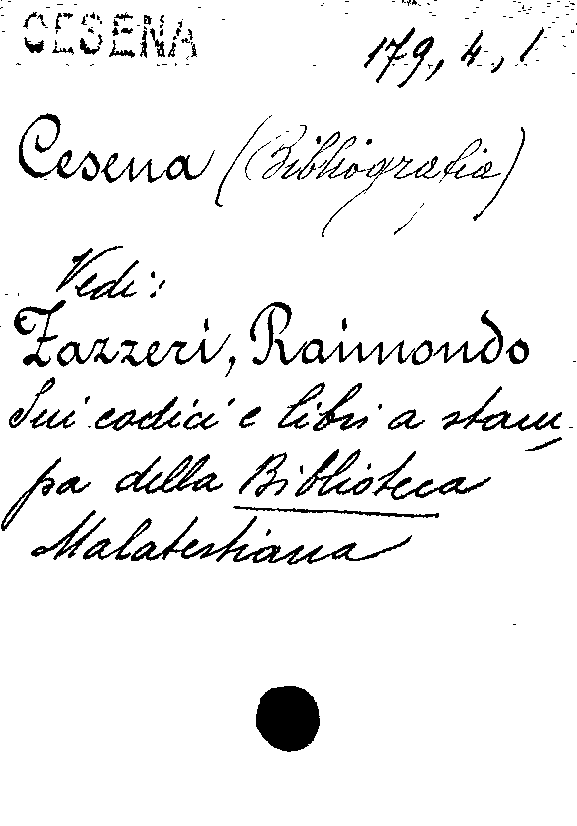 CESENA
179, 4, 1
Cesena (Bibliografia)
Vedi:
Zazzeri, Raimondo
Sui codici e libri a stam-
pa della Biblioteca
Malatestiana